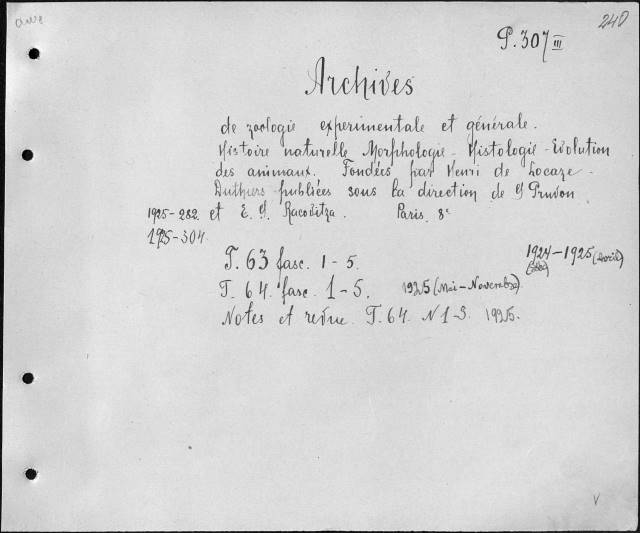 240
P. 307 III
Archives
de zoologie experimentale et générale.
Histoire naturelle Morphologie - Histologie - Evolution
des animaux. Fondées par Henri de Lacaze -
Duthiers publiées sous la direction de G Pruvon
1925-282. et E. G. Racovitza. Paris. 8º
1925-304.
T. 63 fasc. 1-5. 1924-1925 (Avril)
T. 64. fasc. 1-5. 1925 (Mai-Novembre)
Notes et revue. T. 64. N 1-3. 1925.
V